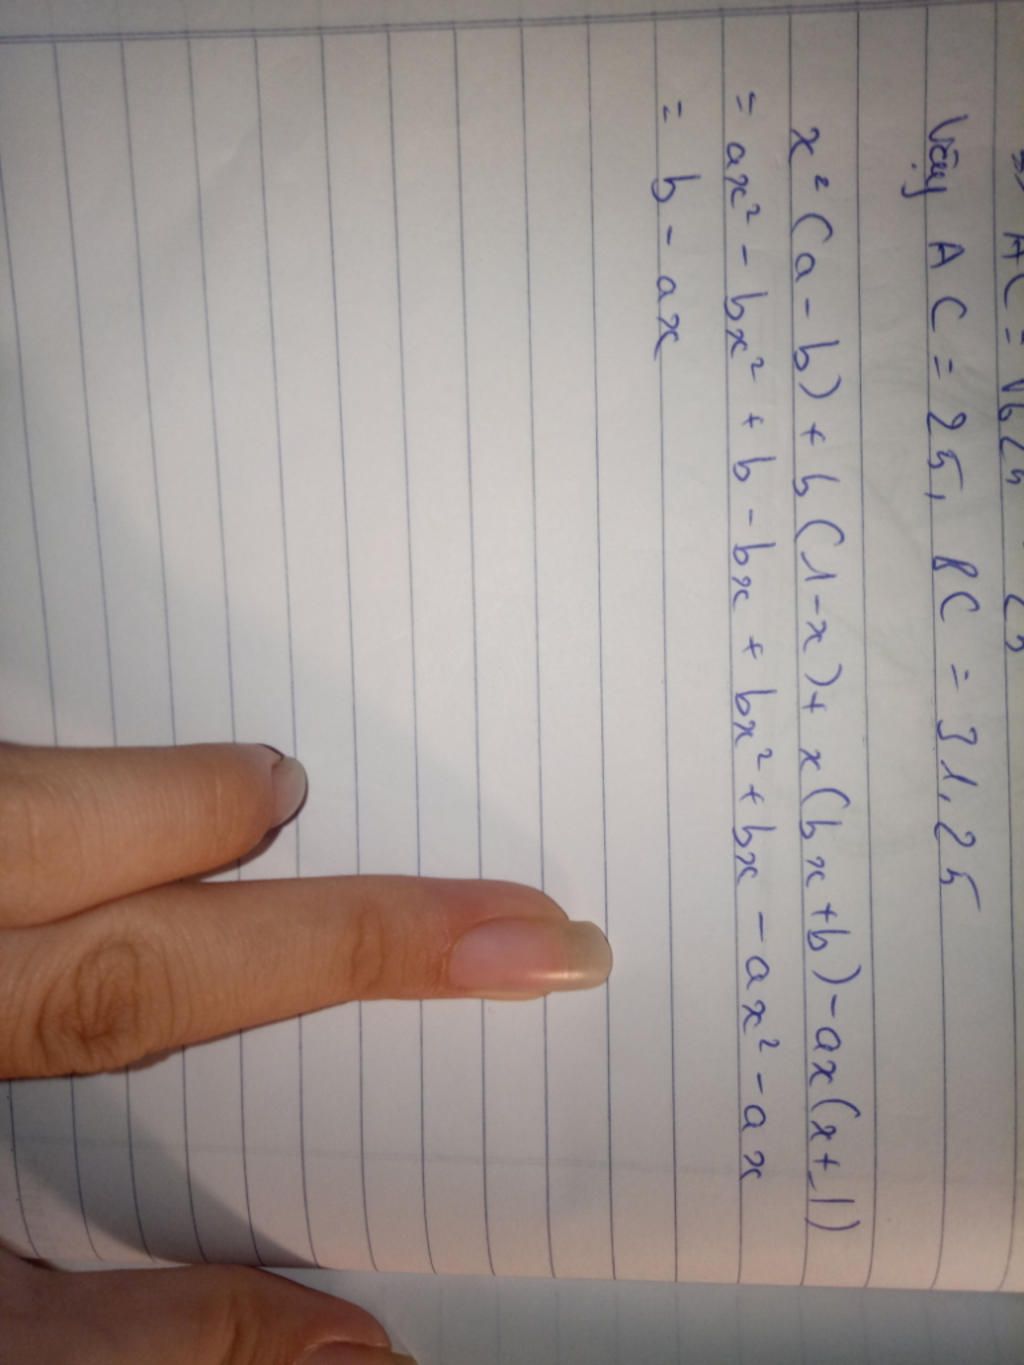 => AC = √625 = 25
Vậy AC = 25, BC = 31,25
x²(a-b) + b(1-x) + x(bx+b) - ax(x+1)
= ax² - bx² + b - bx + bx² + bx - ax² - ax
= b - ax